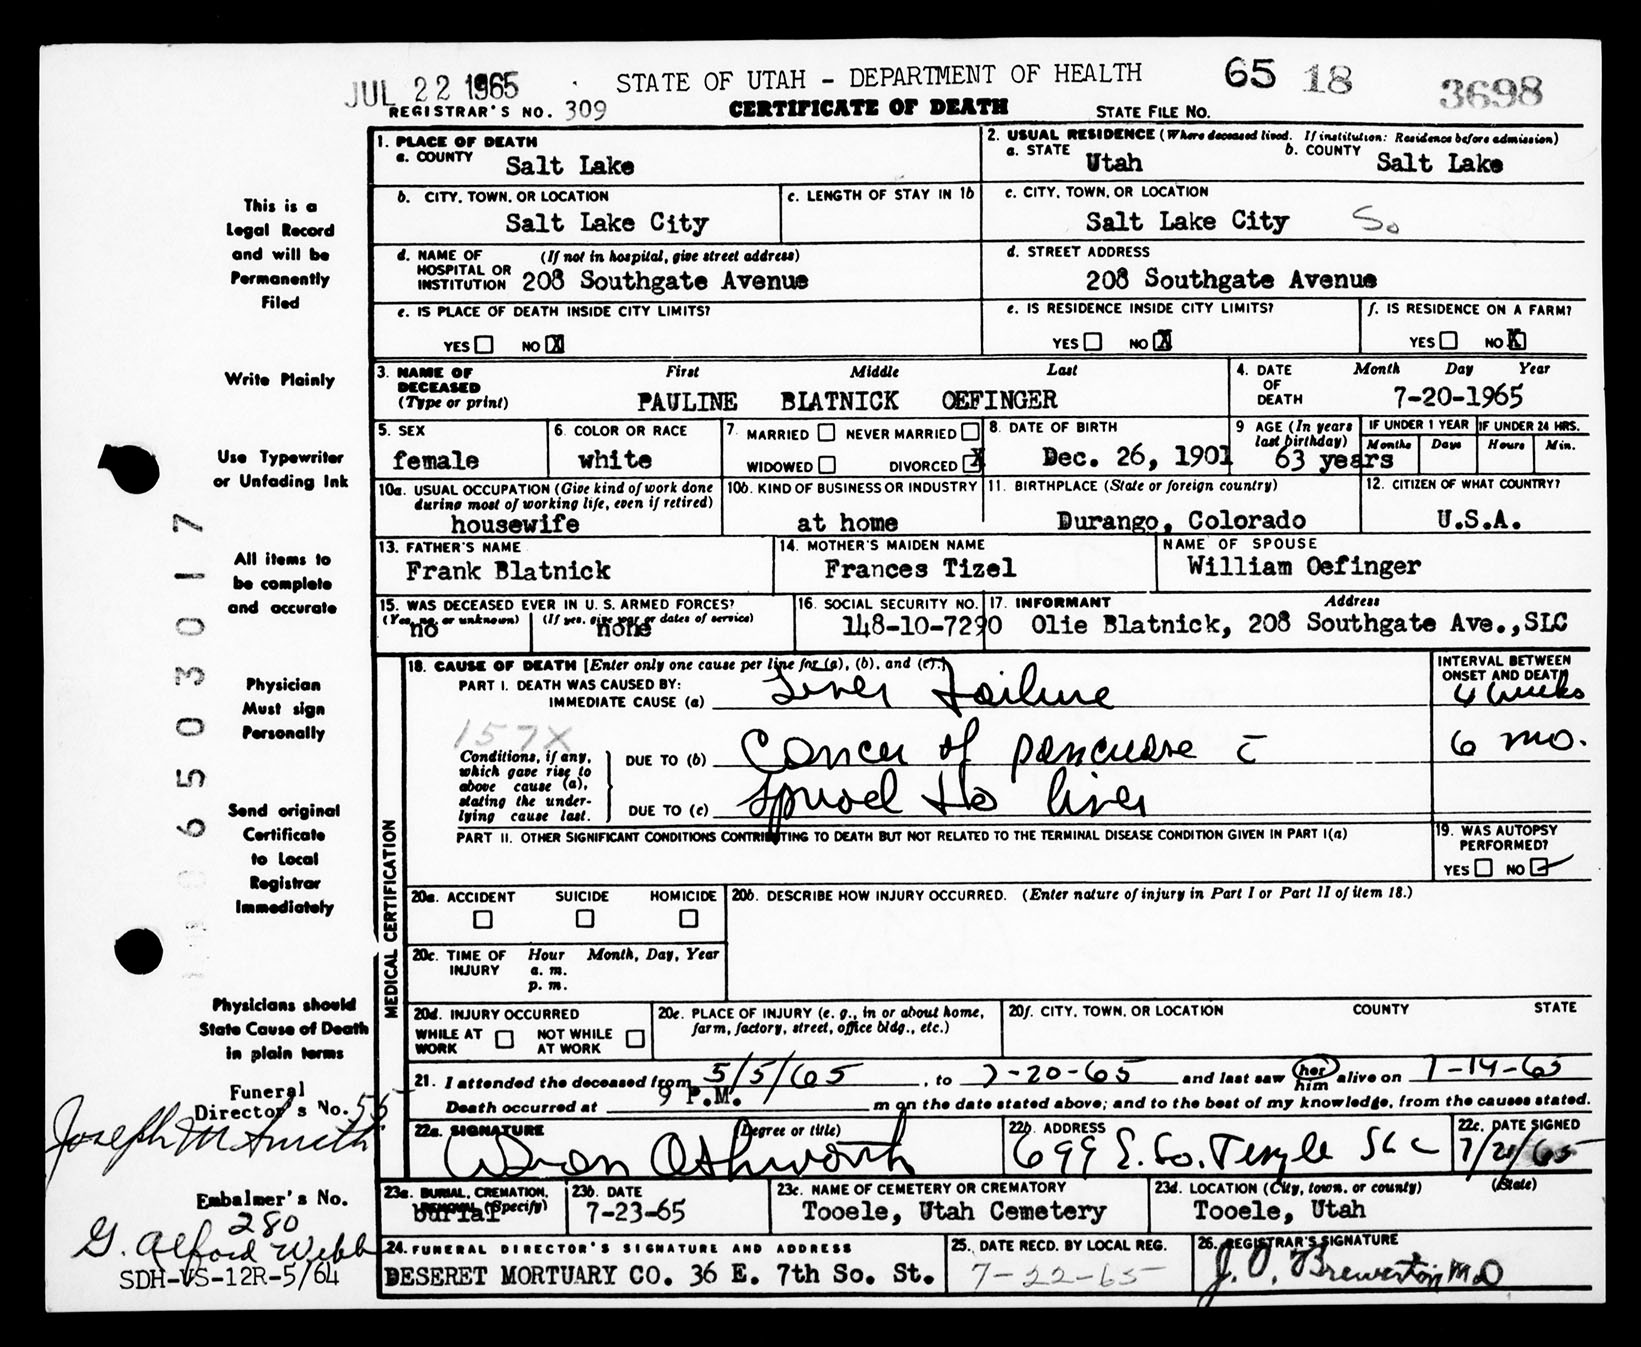 JUL 22 1965
STATE OF UTAH - DEPARTMENT OF HEALTH
65 18 3698
REGISTRAR'S NO. 309
CERTIFICATE OF DEATH
STATE FILE NO.
This is a
Legal Record
and will be
Permanently
Filed
Write Plainly
Use Typewriter
or Unfading Ink
All items to
be complete
and accurate
Physician
Must sign
Personally
Send original
Certificate
to Local
Registrar
Immediately
Physicians should
State Cause of Death
in plain terms
Funeral
Director's No. 55
Joseph M Smith
Embalmer's No.
280
G. Alford Webb
SDH-VS-12R-5/64
0650 3017
1. PLACE OF DEATH
a. COUNTY Salt Lake
2. USUAL RESIDENCE (Where deceased lived. If institution: Residence before admission)
a. STATE Utah b. COUNTY Salt Lake
b. CITY, TOWN, OR LOCATION
Salt Lake City
c. LENGTH OF STAY IN 1b
c. CITY, TOWN, OR LOCATION
Salt Lake City So
d. NAME OF HOSPITAL OR INSTITUTION (If not in hospital, give street address)
208 Southgate Avenue
d. STREET ADDRESS
208 Southgate Avenue
e. IS PLACE OF DEATH INSIDE CITY LIMITS?
YES NO X
e. IS RESIDENCE INSIDE CITY LIMITS?
YES NO X
f. IS RESIDENCE ON A FARM?
YES NO X
3. NAME OF DECEASED (Type or print)
First Middle Last
PAULINE BLATNICK OEFINGER
4. DATE OF DEATH Month Day Year
7-20-1965
5. SEX
female
6. COLOR OR RACE
white
7. MARRIED NEVER MARRIED
WIDOWED DIVORCED X
8. DATE OF BIRTH
Dec. 26, 1901
9 AGE (In years last birthday)
63 years
IF UNDER 1 YEAR
Months Days
IF UNDER 24 HRS.
Hours Min.
10a. USUAL OCCUPATION (Give kind of work done during most of working life, even if retired)
housewife
10b. KIND OF BUSINESS OR INDUSTRY
at home
11. BIRTHPLACE (State or foreign country)
Durango, Colorado
12. CITIZEN OF WHAT COUNTRY?
U.S.A.
13. FATHER'S NAME
Frank Blatnick
14. MOTHER'S MAIDEN NAME
Frances Tizel
NAME OF SPOUSE
William Oefinger
15. WAS DECEASED EVER IN U. S. ARMED FORCES?
(Yes, no, or unknown) (If yes, give war or dates of service)
no none
16. SOCIAL SECURITY NO.
148-10-7290
17. INFORMANT Address
Olie Blatnick, 208 Southgate Ave.,SLC
MEDICAL CERTIFICATION
18. CAUSE OF DEATH [Enter only one cause per line for (a), (b), and (c).]
PART I. DEATH WAS CAUSED BY:
IMMEDIATE CAUSE (a) Liver Failure
INTERVAL BETWEEN ONSET AND DEATH
weeks
157X
Conditions, if any, which gave rise to above cause (a), stating the underlying cause last.
DUE TO (b) Cancer of pancrease c̄
6 mo.
DUE TO (c) spread to liver
PART II. OTHER SIGNIFICANT CONDITIONS CONTRIBUTING TO DEATH BUT NOT RELATED TO THE TERMINAL DISEASE CONDITION GIVEN IN PART I(a)
19. WAS AUTOPSY PERFORMED?
YES NO
20a. ACCIDENT SUICIDE HOMICIDE
20b. DESCRIBE HOW INJURY OCCURRED. (Enter nature of injury in Part I or Part II of item 18.)
20c. TIME OF INJURY Hour Month, Day, Year
a. m.
p. m.
20d. INJURY OCCURRED
WHILE AT WORK NOT WHILE AT WORK
20e. PLACE OF INJURY (e. g., in or about home, farm, factory, street, office bldg., etc.)
20f. CITY, TOWN, OR LOCATION COUNTY STATE
21. I attended the deceased from 5/5/65, to 7-20-65 and last saw her him alive on 7-14-65
Death occurred at 9 P.M. m on the date stated above; and to the best of my knowledge, from the causes stated.
22a. SIGNATURE (Degree or title)
Ashworth
22b. ADDRESS
699 E. So. Temple SLC
22c. DATE SIGNED
7/21/65
23a. BURIAL, CREMATION, REMOVAL (Specify)
burial
23b. DATE
7-23-65
23c. NAME OF CEMETERY OR CREMATORY
Tooele, Utah Cemetery
23d. LOCATION (City, town, or county) (State)
Tooele, Utah
24. FUNERAL DIRECTOR'S SIGNATURE AND ADDRESS
DESERET MORTUARY CO. 36 E. 7th So. St.
25. DATE RECD. BY LOCAL REG.
7-22-65
26. REGISTRAR'S SIGNATURE
J. O. Brewerton M.D